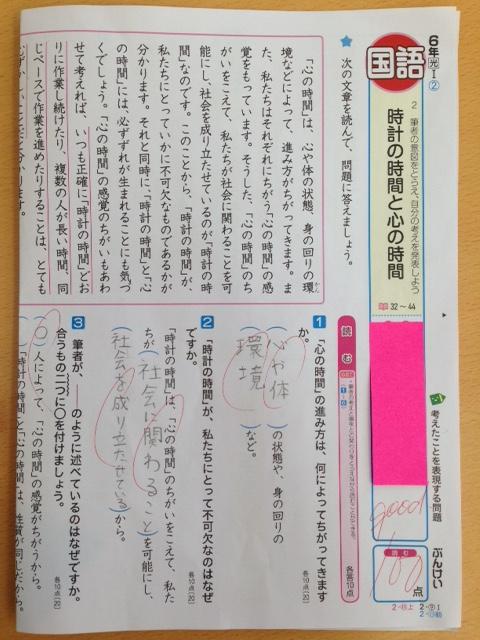 6年 光 I ②
国語
2 筆者の意図をとらえ、自分の考えを発表しよう
時計の時間と心の時間
32～44
考えたことを表現する問題
good
ぶんけい
読む
100点
2-㊤上
★ 次の文章を読んで、問題に答えましょう。
「心の時間」は、心や体の状態、身の回りの環
かん
境などによって、進み方がちがってきます。ま
た、私たちはそれぞれにちがう「心の時間」の感
覚をもっています。そうした、「心の時間」のち
がいをこえて、私たちが社会に関わることを可
能にし、社会を成り立たせているのが「時計の時
間」なのです。このことから、「時計の時間」が、
私たちにとっていかに不可欠なものであるかが
分かります。それと同時に、「時計の時間」と「心
の時間」には、必ずずれが生まれることにも気づ
くでしょう。「心の時間」の感覚のちがいもあわ
せて考えれば、いつも正確に「時計の時間」どお
りに作業し続けたり、複数の人が長い時間、同
じペースで作業を進めたりすることは、とても
むずかしいことだと分かります。
読む
各10点
1 「心の時間」の進み方は、何によってちがってきます
か。
（心や体）の状態や、身の回りの
（環境）など。
2 「時計の時間」が、私たちにとって不可欠なのはなぜ
ですか。
各10点(20)
「時計の時間」は、「心の時間」のちがいをこえて、私た
ちが（社会に関わること）を可能にし、
（社会を成り立たせている）から。
3 筆者が、＿＿のように述べているのはなぜですか。
合うもの二つに○を付けましょう。
各10点(20)
（○）人によって、「心の時間」の感覚がちがうから。
（ ）「時計の時間」と「心の時間」は、性質が同じだから。